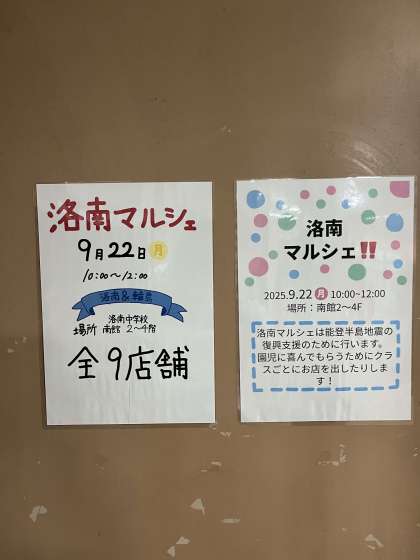 洛南マルシェ
9月22日月
10:00〜12:00
洛南&輪島
洛南中学校
場所 南館 2〜4階
全9店舗
洛南
マルシェ‼
2025.9.22 月 10:00~12:00
場所：南館2〜4F
洛南マルシェは能登半島地震の
復興支援のために行います。
園児に喜んでもらうためにクラ
スごとにお店を出したりしま
す！